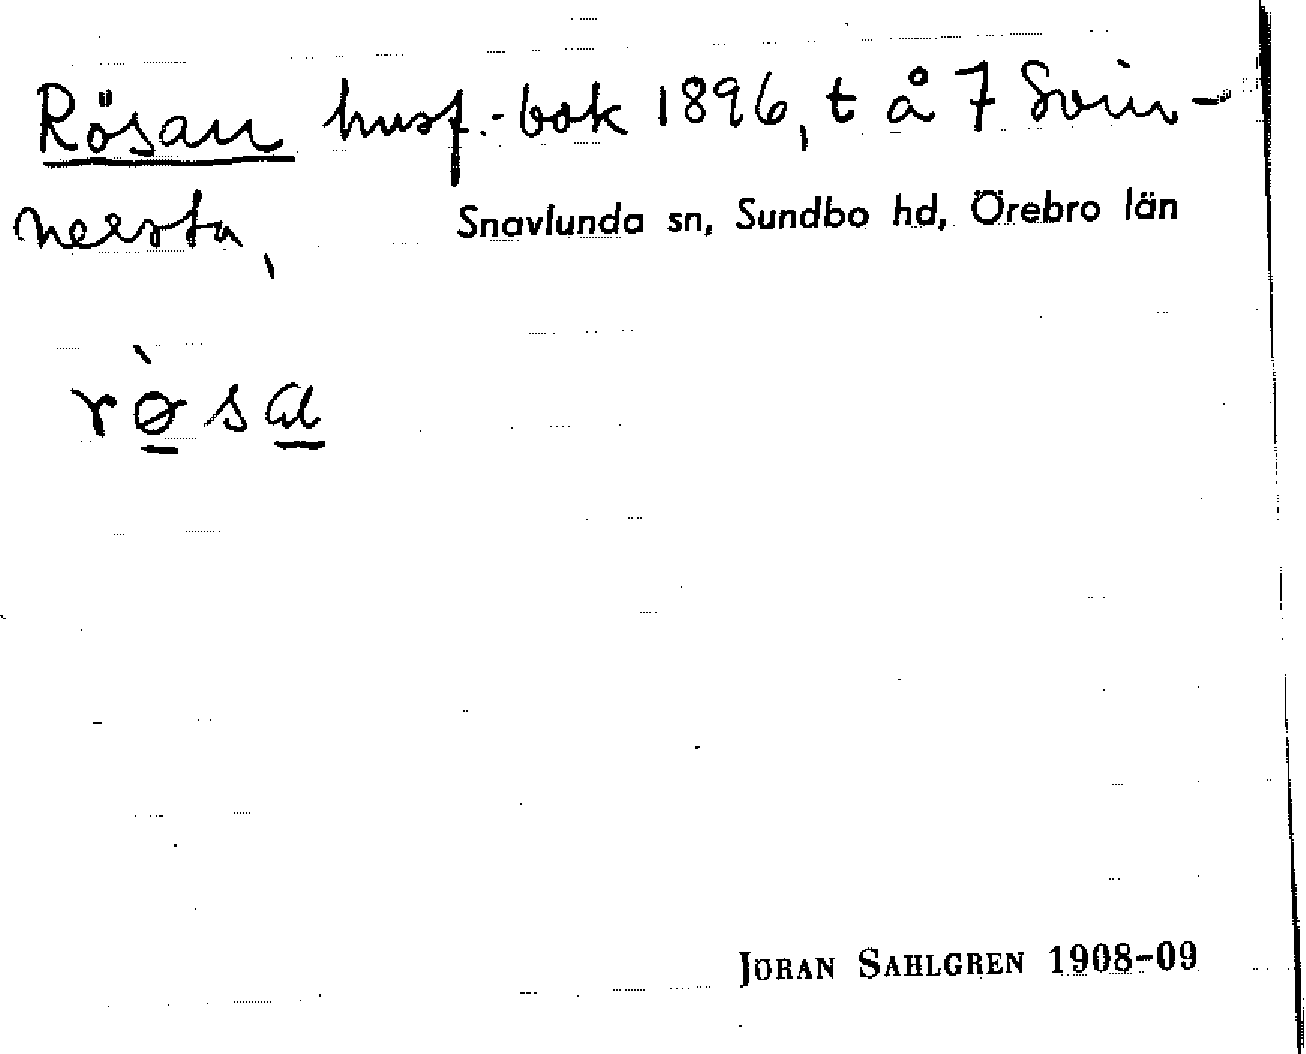 Rösan husf.-bok 1896, t å 7 Svin-
nersta,
Snavlunda sn, Sundbo hd, Örebro län
rø̀sa
JÖRAN SAHLGREN 1908-09